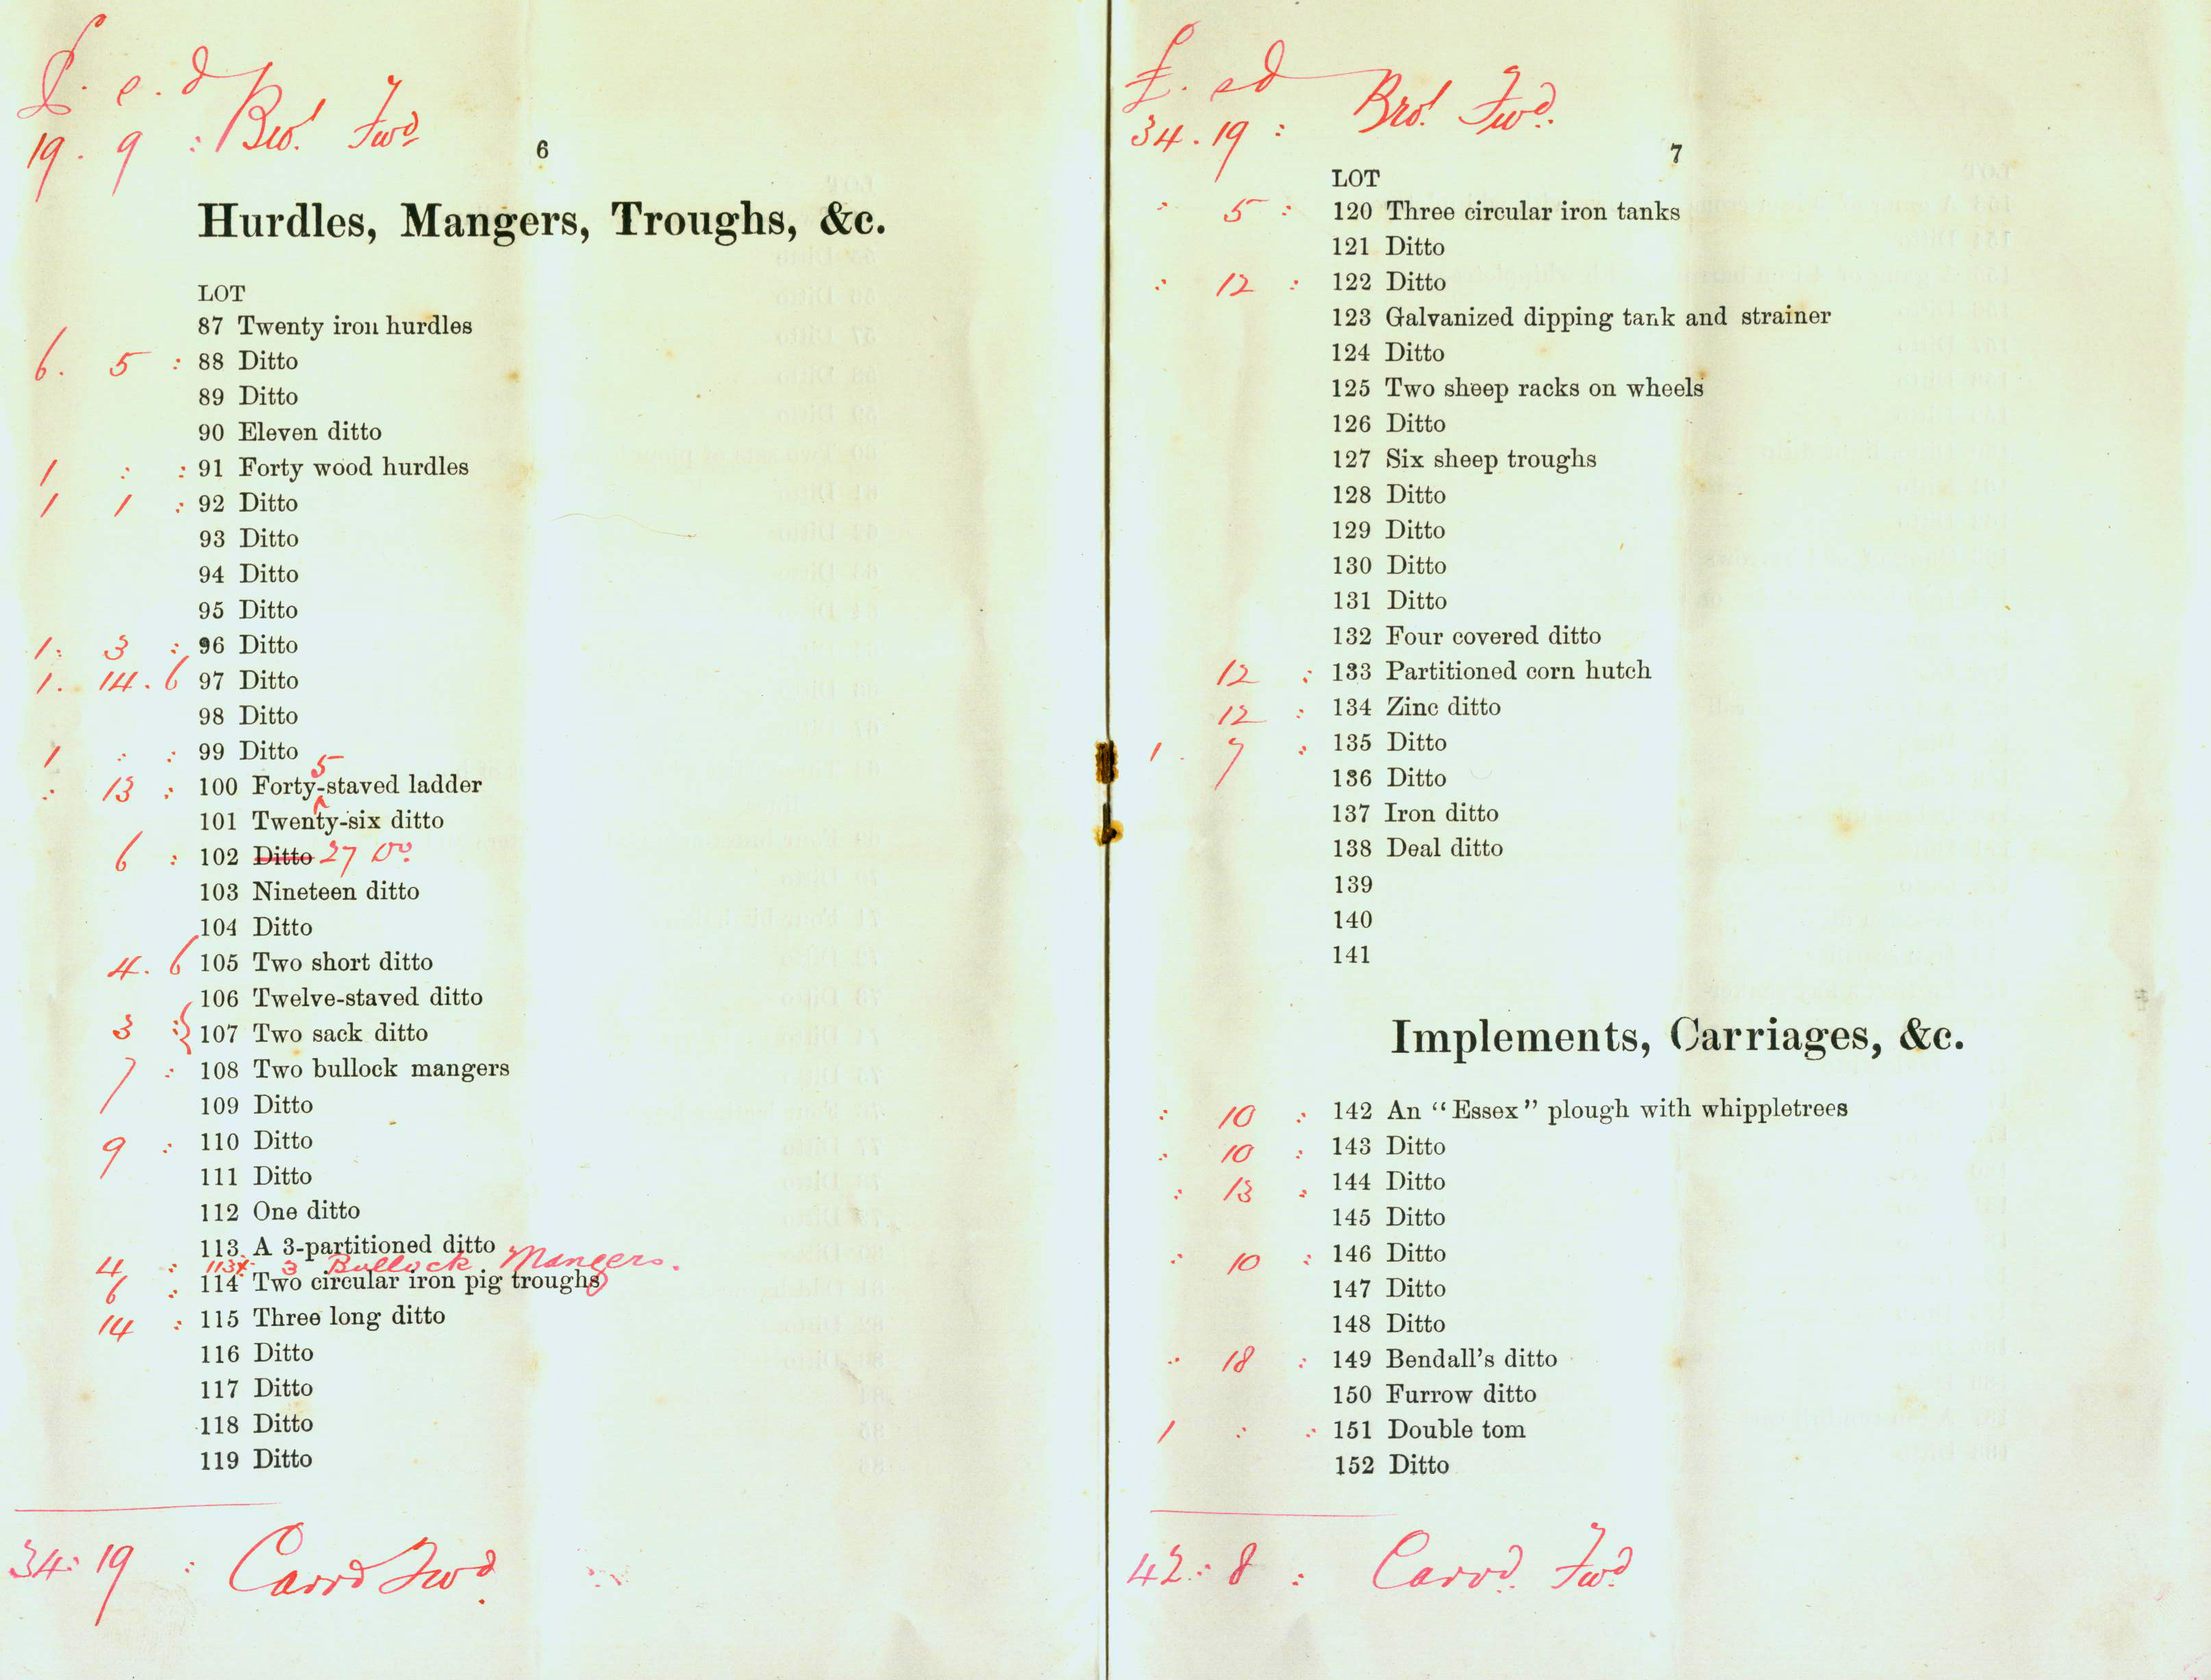 £. s. d
19. 9 : Bro! Fwd
6
Hurdles, Mangers, Troughs, &c.
LOT
87 Twenty iron hurdles
6. 5 : 88 Ditto
89 Ditto
90 Eleven ditto
1 : : 91 Forty wood hurdles
1 1 : 92 Ditto
93 Ditto
94 Ditto
95 Ditto
1. 3 : 96 Ditto
1. 14. 6 97 Ditto
98 Ditto
1 : : 99 Ditto
5
: 13 : 100 Forty-staved ladder
101 Twenty-six ditto
6 : 102 Ditto 27 Do
103 Nineteen ditto
104 Ditto
4. 6 105 Two short ditto
106 Twelve-staved ditto
3 : 107 Two sack ditto
7 : 108 Two bullock mangers
109 Ditto
9 : 110 Ditto
111 Ditto
112 One ditto
113 A 3-partitioned ditto
4 : 113x 3 Bullock Mangers.
6 : 114 Two circular iron pig troughs
14 : 115 Three long ditto
116 Ditto
117 Ditto
118 Ditto
119 Ditto
34: 19 : Carrd Fwd
£. s d
34. 19 : Bro! Fwd.
7
LOT
: 5 : 120 Three circular iron tanks
121 Ditto
: 12 : 122 Ditto
123 Galvanized dipping tank and strainer
124 Ditto
125 Two sheep racks on wheels
126 Ditto
127 Six sheep troughs
128 Ditto
129 Ditto
130 Ditto
131 Ditto
132 Four covered ditto
12 : 133 Partitioned corn hutch
12 : 134 Zinc ditto
1. 7 : 135 Ditto
136 Ditto
137 Iron ditto
138 Deal ditto
139
140
141
Implements, Carriages, &c.
: 10 : 142 An "Essex" plough with whippletrees
: 10 : 143 Ditto
: 13 : 144 Ditto
145 Ditto
: 10 : 146 Ditto
147 Ditto
148 Ditto
: 18 : 149 Bendall's ditto
150 Furrow ditto
1 : : 151 Double tom
152 Ditto
42: 8 : Carrd. Fwd